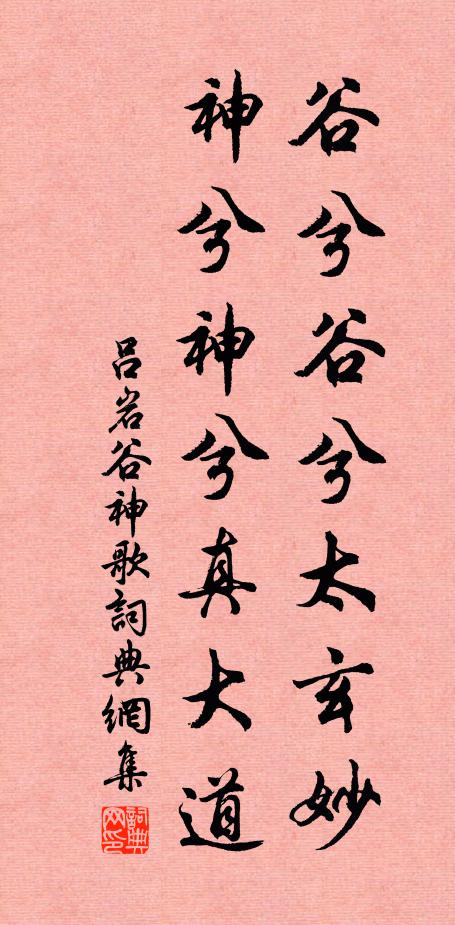 谷兮谷兮太玄妙
神兮神兮真大道
吕岩谷神歌詞典網集
詞典网印